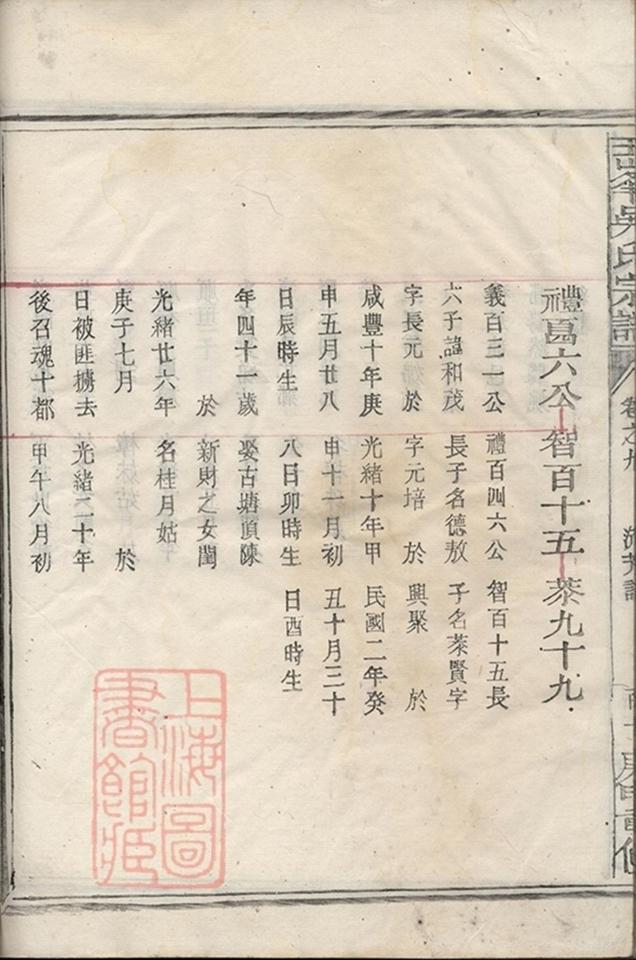 吳氏宗譜
卷之九
禮百四六公 智百十五 萘九十九
義百三一公
六子諱和茂
字長元 於
咸豐十年庚
申五月廿八
日辰時生
年四十一歲
於
光緒廿六年
庚子七月
日被匪擄去
後召魂十都
禮百四六公
長子名德敖
字元培 於
光緒十年甲
申十一月初
八日卯時生
娶古塘頂陳
新財之女閨
名桂月姑
於
光緒二十年
甲午八月初
智百十五長
子名萘賢字
興聚 於
民國二年癸
丑十月三十
日酉時生
上海圖
書館藏